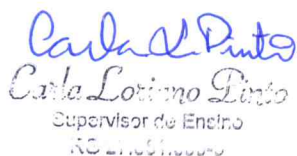 Carla L. Pinto
Carla Loriano Pinto
Supervisor de Ensino